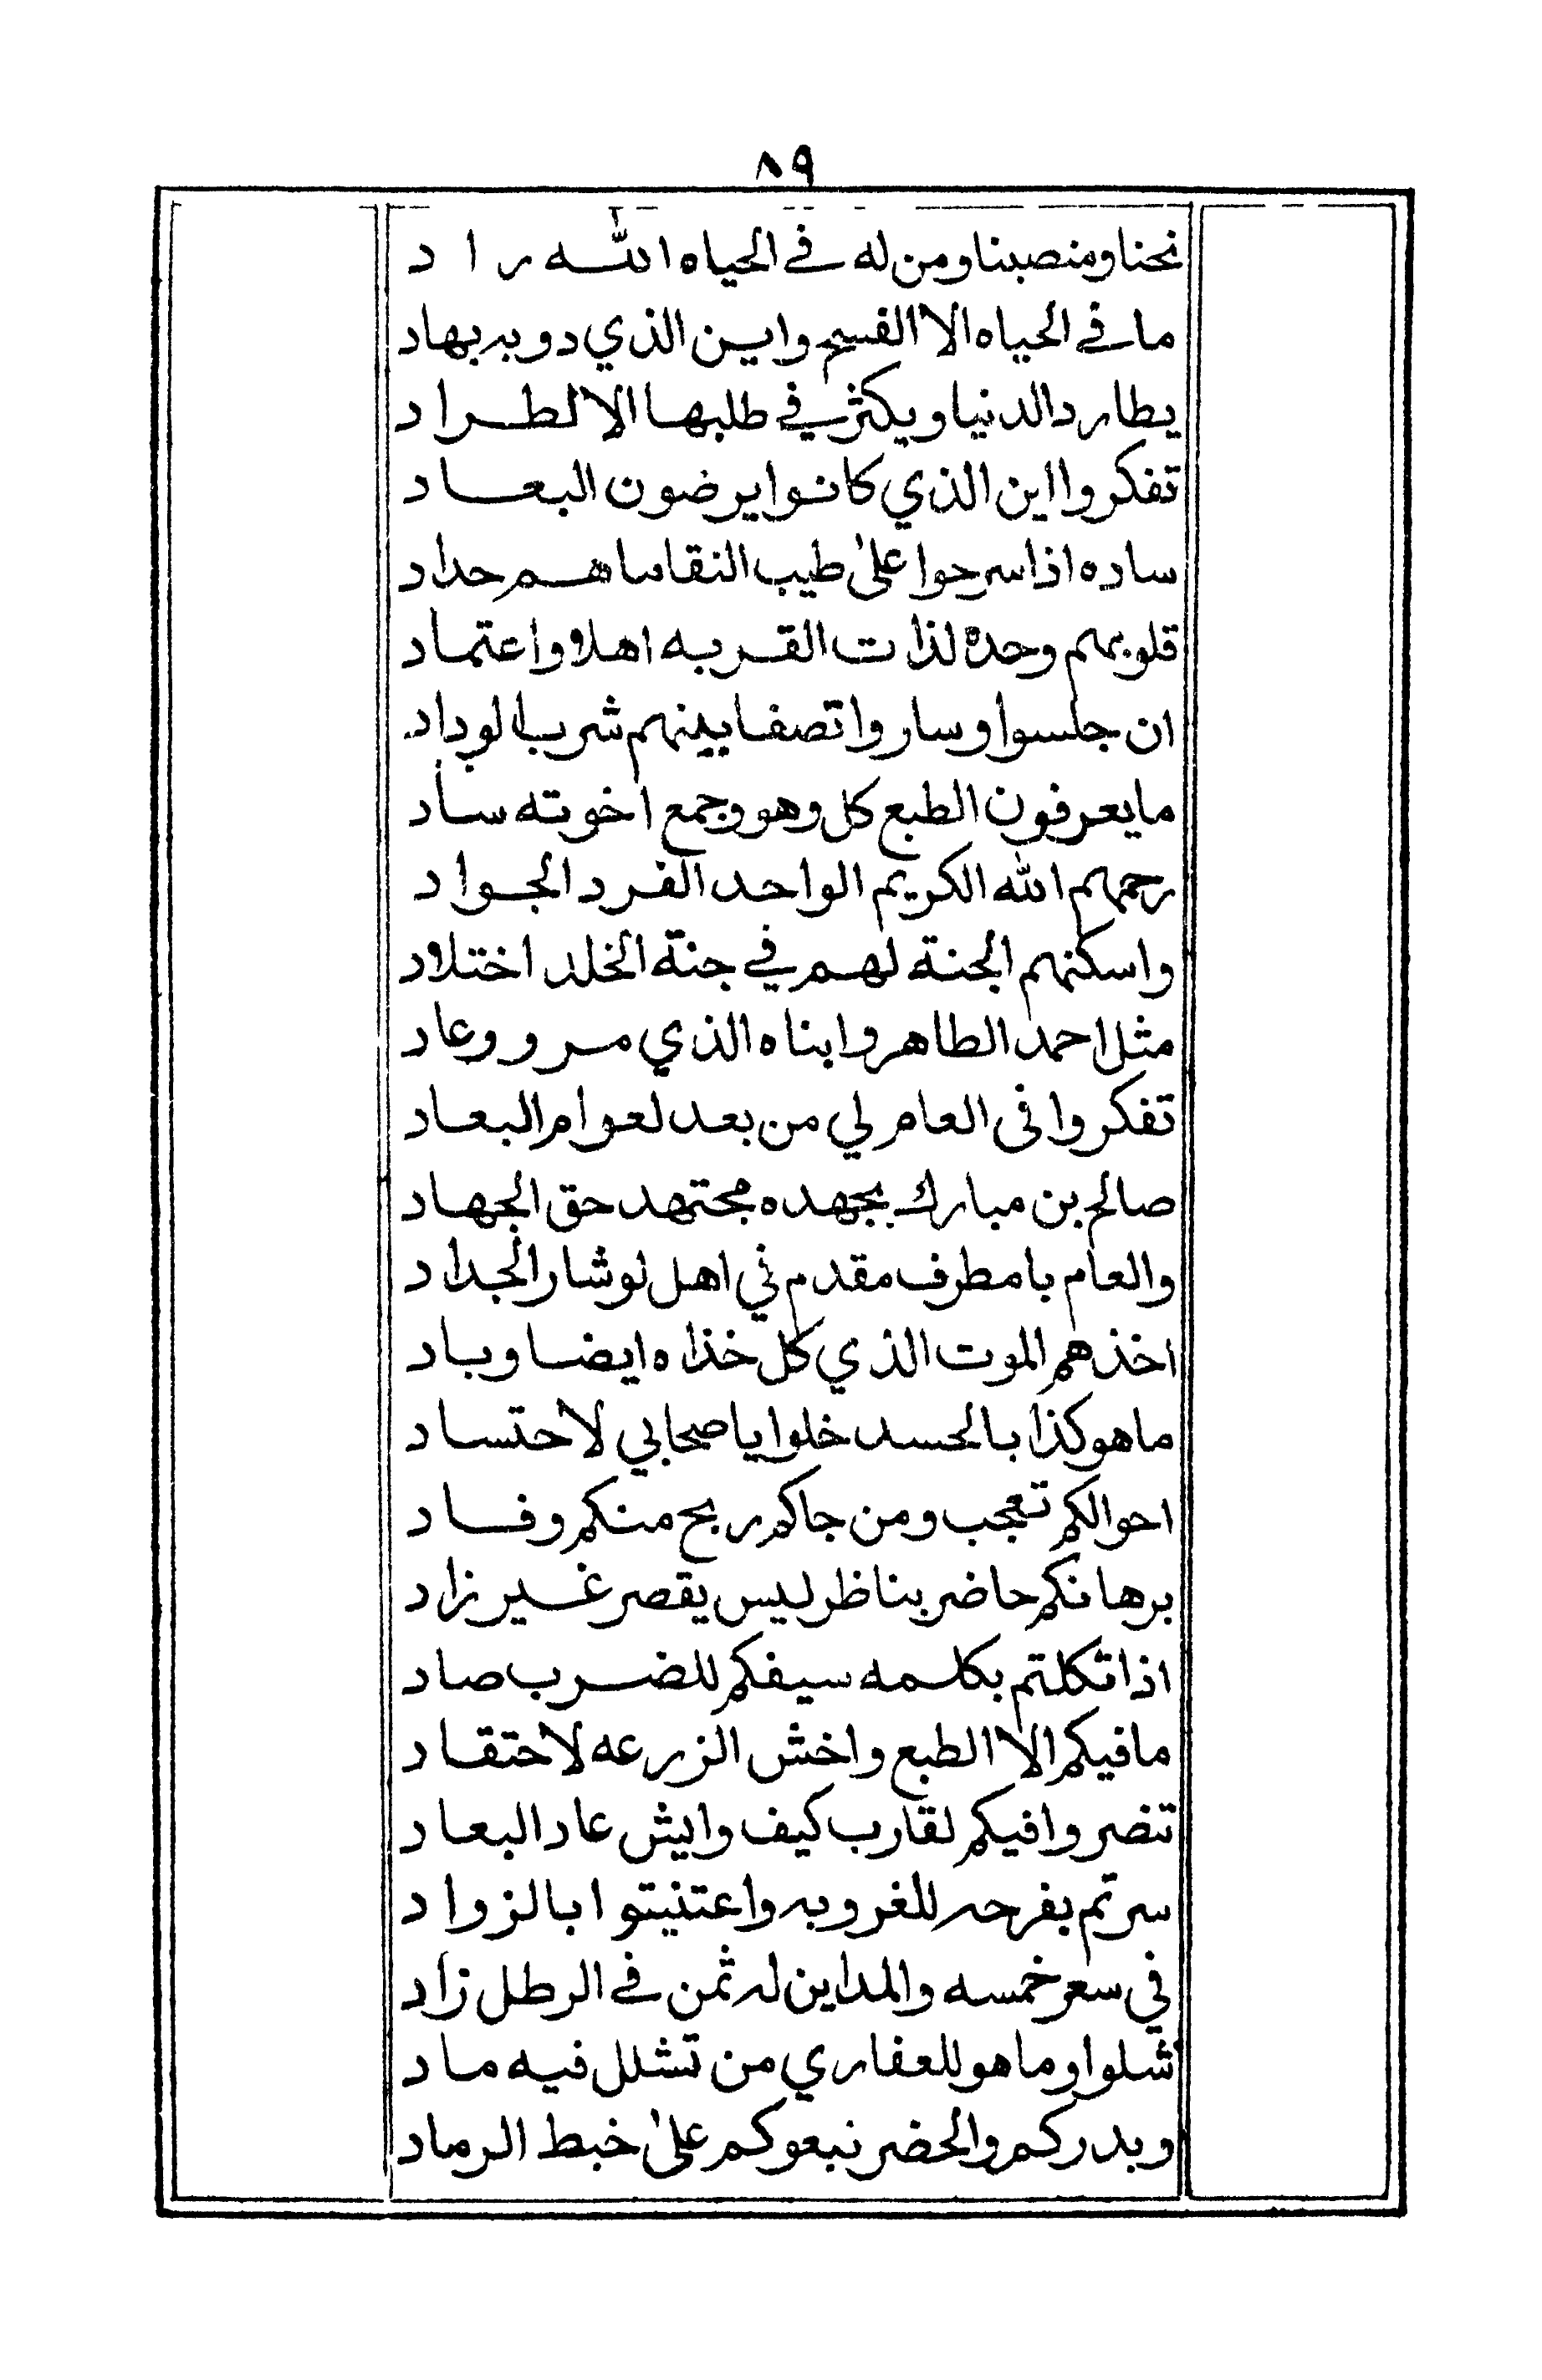 ٨٩
نحنا ومنصبنا ومن له في الحياه الله راد
ما في الحياه الا القسم واين الذي دوبه بهاد
يطارد الدنيا ويكثر في طلبها الا لطراد
تفكروا اين الذي كانوا يرضون البعاد
ساده اذا سرحوا على طيب النقا ماهم حداد
قلوبهم وحده لذات القربه اهلا واعتماد
ان جلسوا وساروا تصفا بينهم شرب الوداد
ما يعرفون الطبع كل وهو وجمع اخوته ساد
رحمهم الله الكريم الواحد الفرد الجواد
واسكنهم الجنة لهم في جنة الخلد اختلاد
مثل احمد الطاهر وابناه الذي مرو وعاد
تفكروا في العام لي من بعد لعوام البعاد
صالح بن مبارك بجهده مجتهد حق الجهاد
والعام بامطرف مقدم في اهل لوشار الجداد
اخذهم الموت الذي كل خذاه ايضا وباد
ما هو كذا بالحسد خلوا يا صحابي لاحتساد
احوالكم تعجب ومن جاكم ربح منكم وفاد
برهانكم حاضر بناظر ليس يقصر غير زاد
اذا تكلتم بكلمه سيفكم للضرب صاد
ما فيكم الا الطبع واخش الزرعه لاحتقاد
تنضروا فيكم لقارب كيف وايش عاد البعاد
سرتم بفرحه للغروبه واعتنيتوا بالزواد
في سعر خمسه والمداين له ثمن في الرطل زاد
شلوا وما هو للعفاري من تشلل فيه ماد
وبدركم والحضر نبعوكم على خبط الرماد